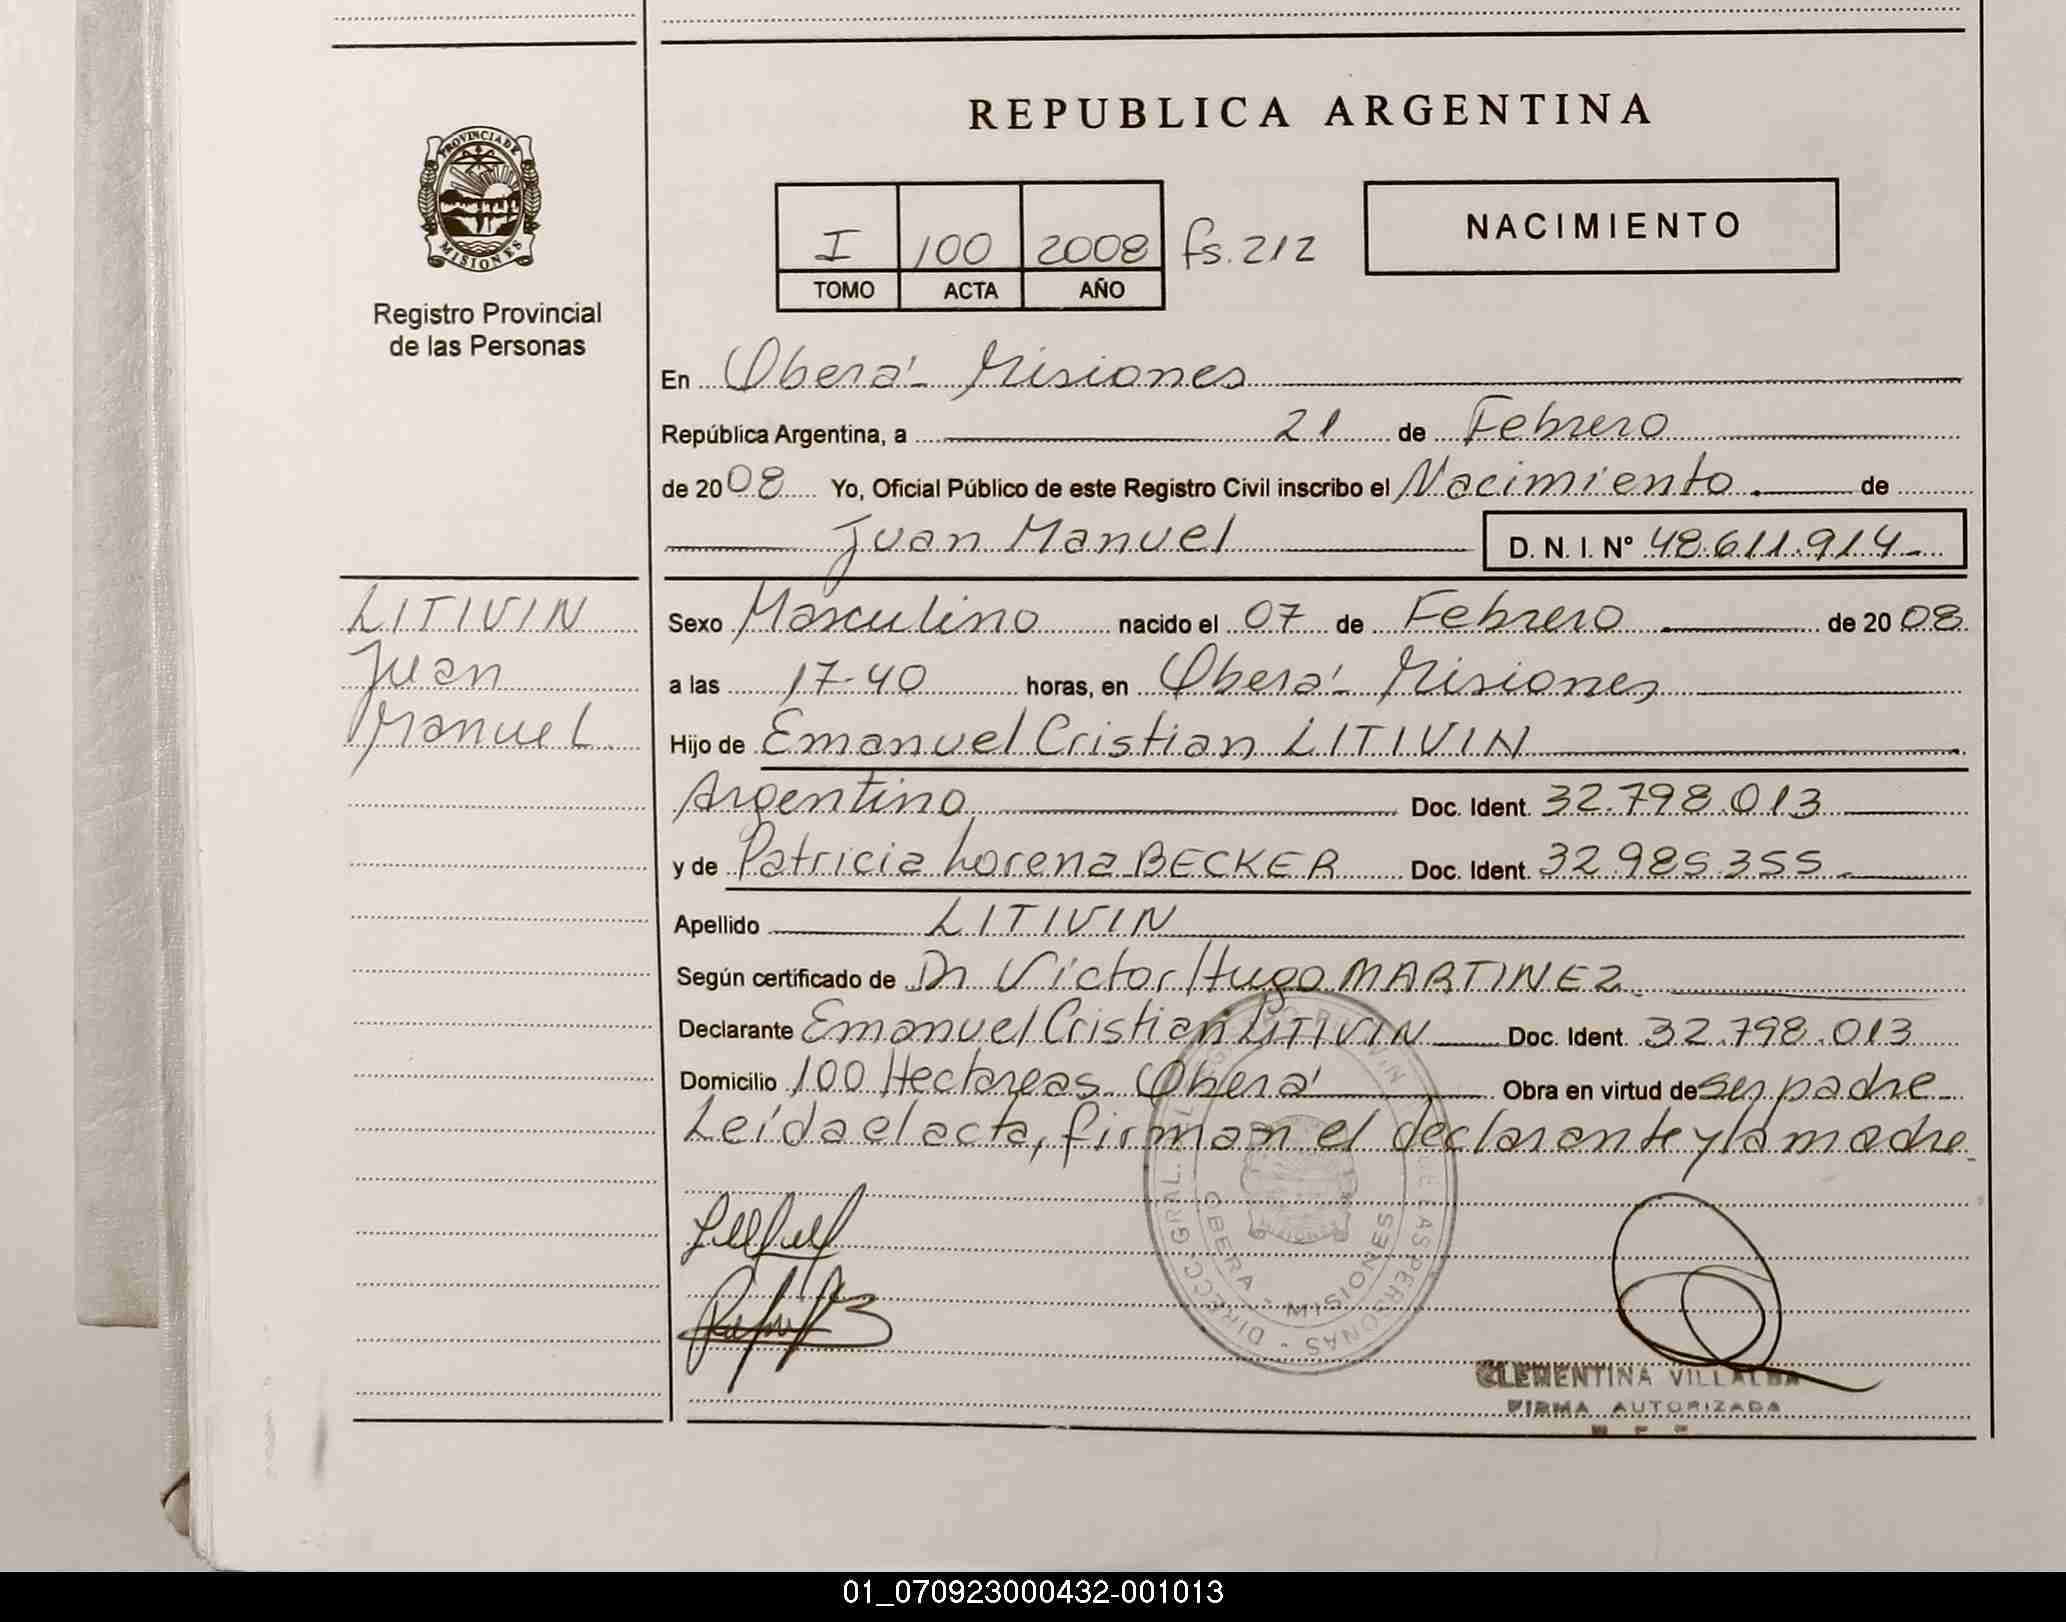 REPUBLICA ARGENTINA
PROVINCIA DE
MISIONES
Registro Provincial
de las Personas
I 100 2008 fs. 212
TOMO ACTA AÑO
NACIMIENTO
En Oberá - Misiones
República Argentina, a 21 de Febrero
de 2008 Yo, Oficial Público de este Registro Civil inscribo el Nacimiento de
Juan Manuel D. N. I. N° 48.611.914-
LITIVIN
Juan
Manuel.
Sexo Masculino nacido el 07 de Febrero de 2008
a las 17-40 horas, en Oberá - Misiones
Hijo de Emanuel Cristian LITIVIN
Argentino Doc. Ident. 32.798.013
y de Patricia Lorena BECKER Doc. Ident. 32.985.355
Apellido LITIVIN
Según certificado de Dr Victor Hugo MARTINEZ.
Declarante Emanuel Cristian LITIVIN Doc. Ident. 32.798.013
Domicilio 100 Hectareas - Oberá Obra en virtud de ser padre
Leída el acta, firman el declarante y la madre
OBERA - MISIONES
CLEMENTINA VILLALBA
FIRMA AUTORIZADA
01_070923000432-001013